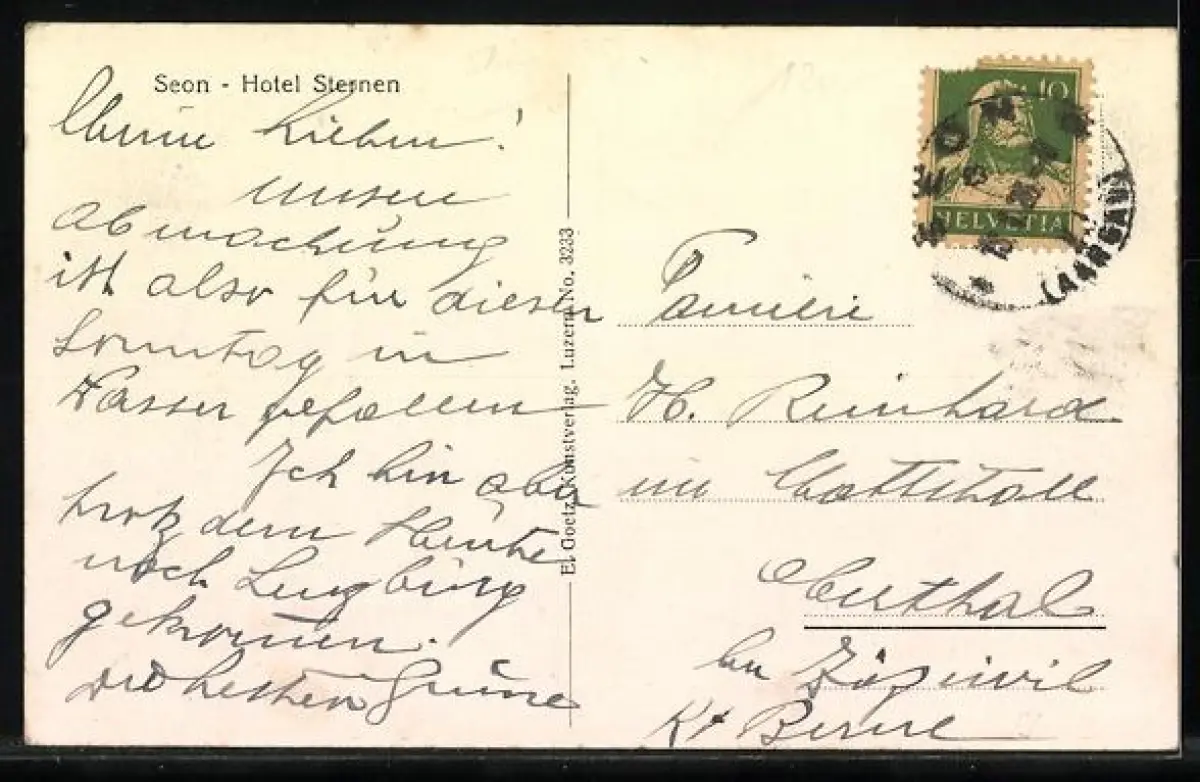 Seon - Hotel Sternen
Meine Lieben!
Unsere
abmachung
ist also für diesen
Sonntag in
Wasser gefallen
Ich bin aber
trotz dem Heute
noch Lenzburg
gekommen.
die besten Grüsse
E. Goetz, Kunstverlag, Luzern No. 3233
10
HELVETIA
(AARGAU)
Familie
H. Reinhard
im
bei
Kt Berne